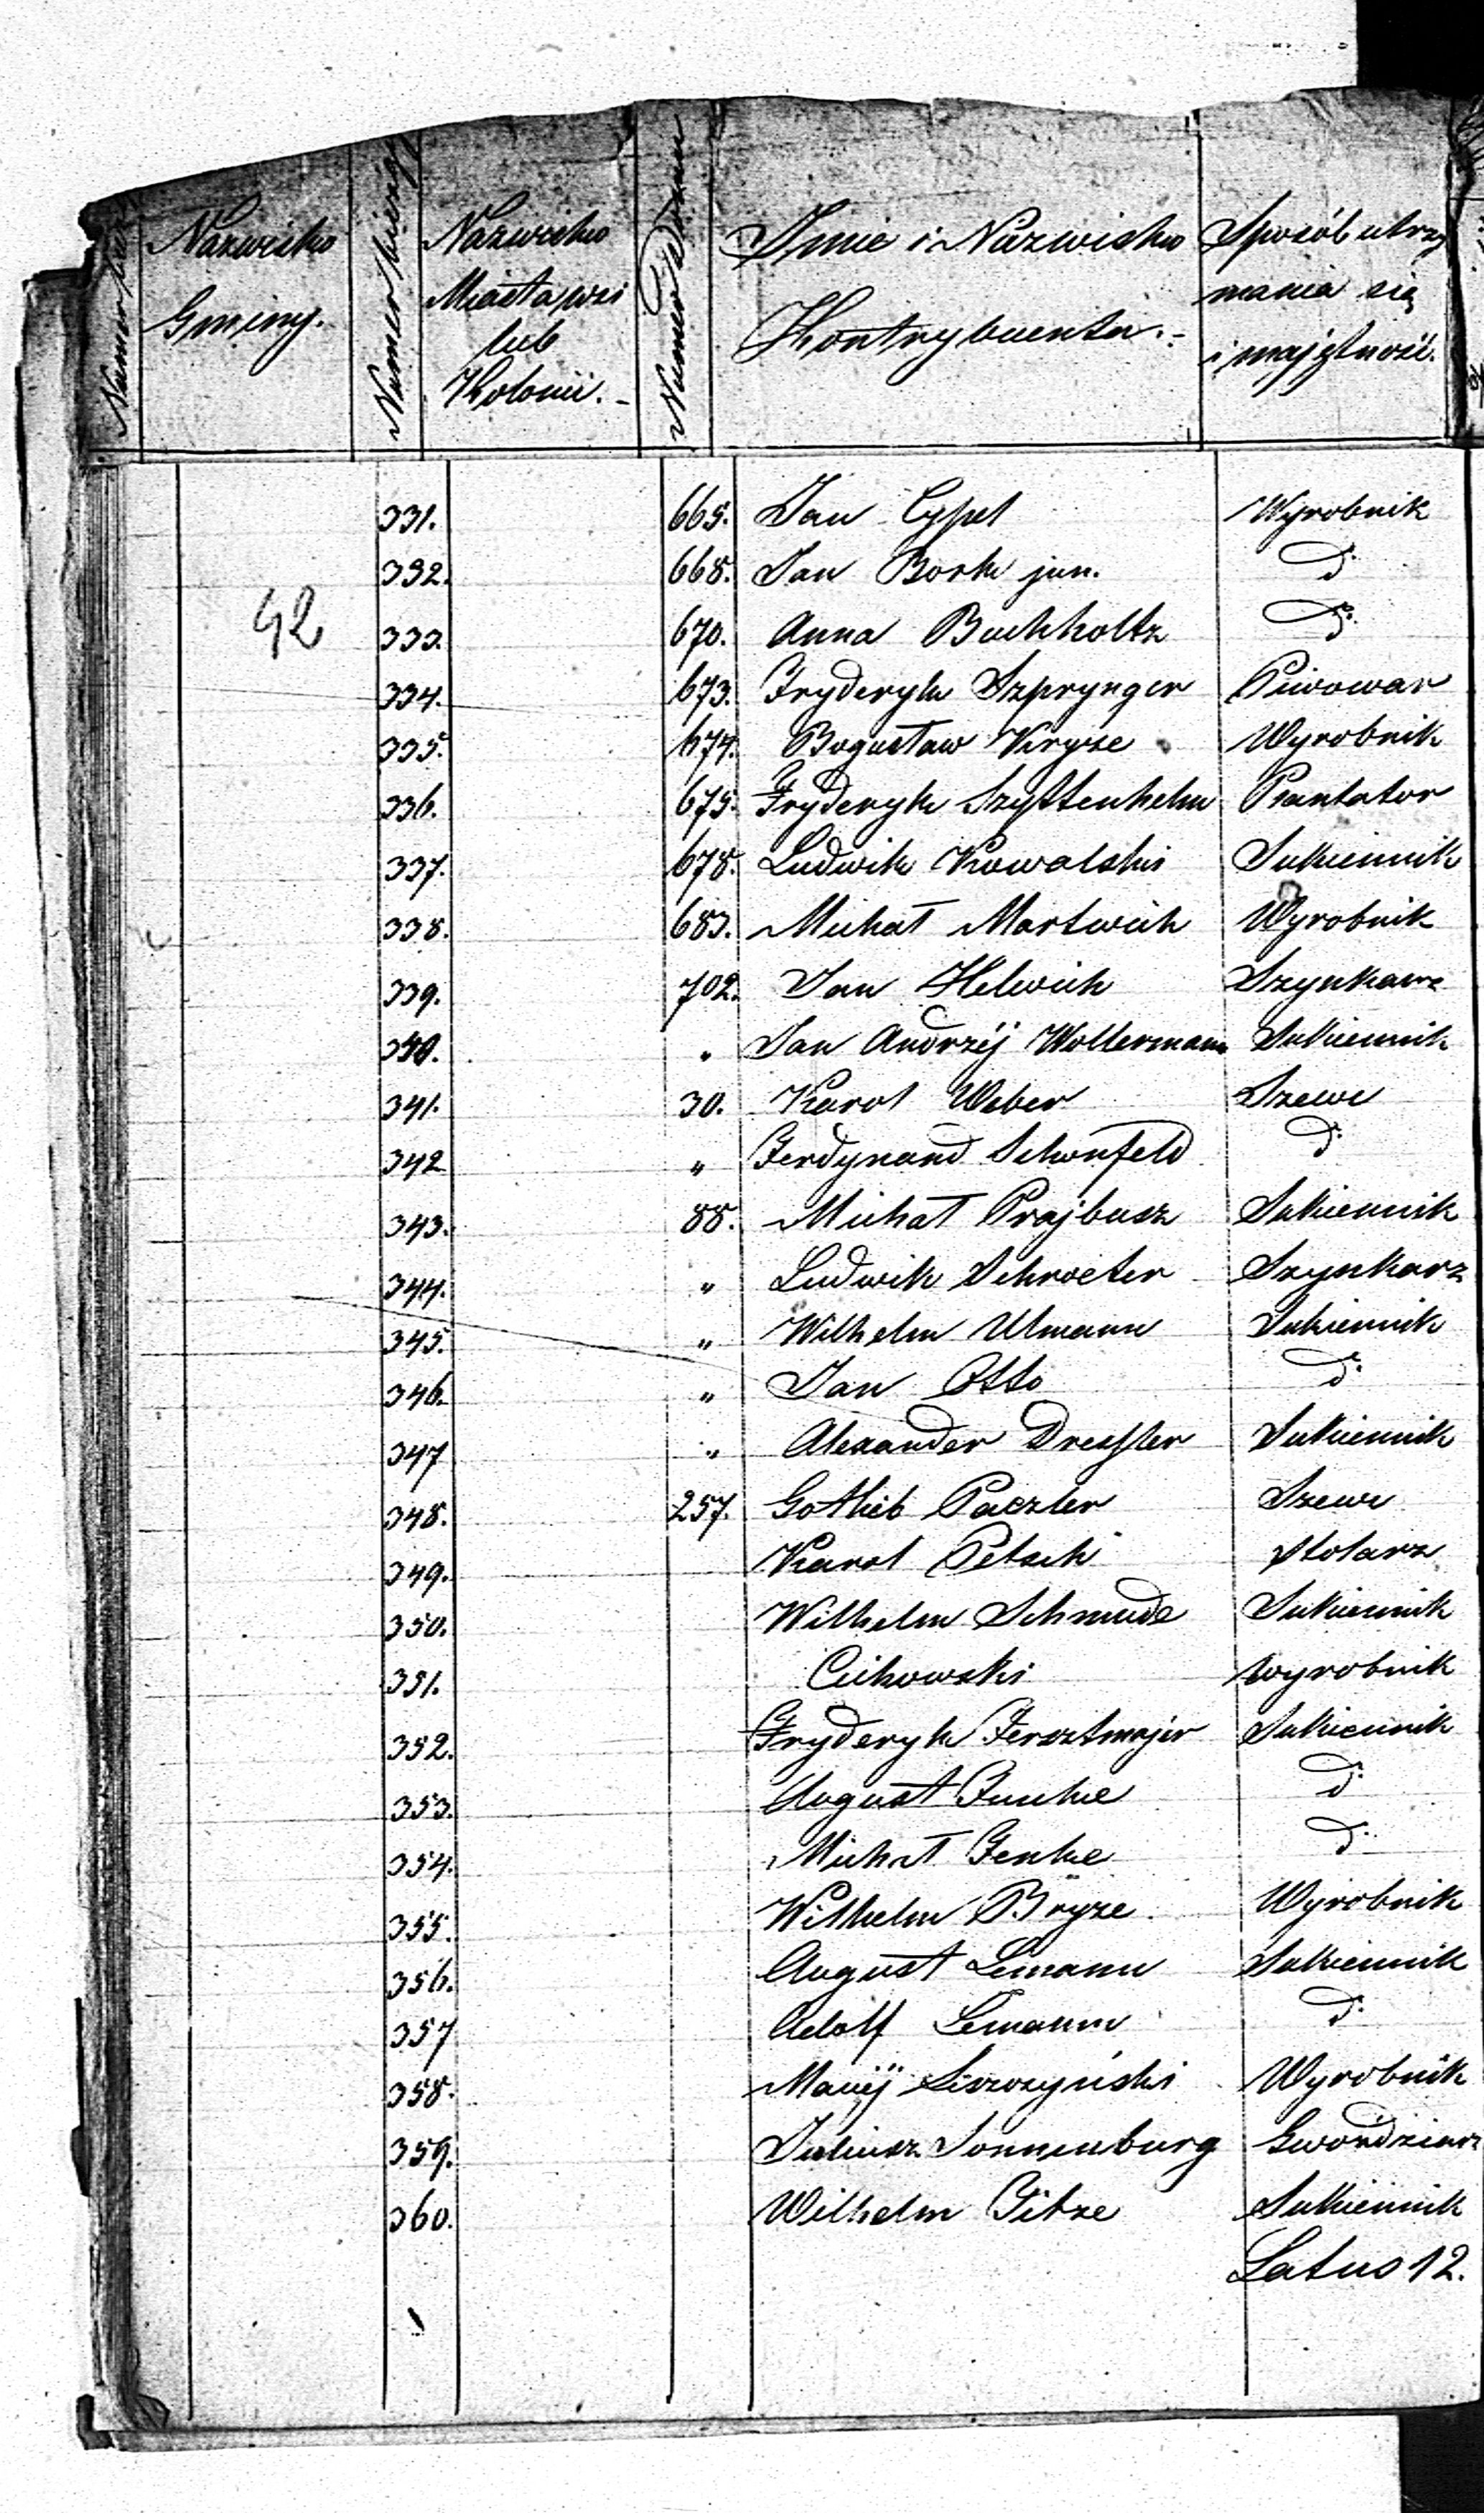 Nazwisko Gminy.
Numer bieżący
Nazwisko Miasta, wsi lub Kolonii.-
Numer Domu
Imie i Nazwisko Kontrybuenta.-
Sposób utrzymania się i majętność.
42
331. 665. Jan Cypel Wyrobnik
332. 668. Jan Bork jun. d:
333. 670. Anna Buchholtz d:
334. 673. Fryderyk Szprynger Piwowar
335. 674. Bogusław Kryze Wyrobnik
336. 675. Fryderyk Szyttenhelm Plantator
337. 678. Ludwik Kowalski Sukiennik
338. 683. Michał Martwich Wyrobnik
339. 702. Jan Helwich Szynkarz
340. „ Jan Andrzéj Woltermann Sukiennik
341. 30. Karol Weber Szewc
342 „ Ferdynand Schonfeld d:
343. 88. Michał Prajbusz Sukiennik
344. „ Ludwik Schroeter Szynkarz
345. „ Wilhelm Ulmann Sukiennik
346. „ Jan Otto d:
347 „ Alexander Dressler Sukiennik
348. 257. Gottlieb Paezler Szewc
349. Karol Petsch Stolarz
350. Wilhelm Schmude Sukiennik
351. Cichowski Wyrobnik
352. Fryderyk Fersztmajer Sukiennik
353. August Funke d:
354. Michał Fenke d:
355. Wilhelm Bryze Wyrobnik
356. August Lemann Sukiennik
357 Adolf Lemann d:
358. Maciéj Wyrobnik
359. Juliusz Sonnenburg Gwoździarz
360. Wilhelm Titze Sukiennik
Latus 12.